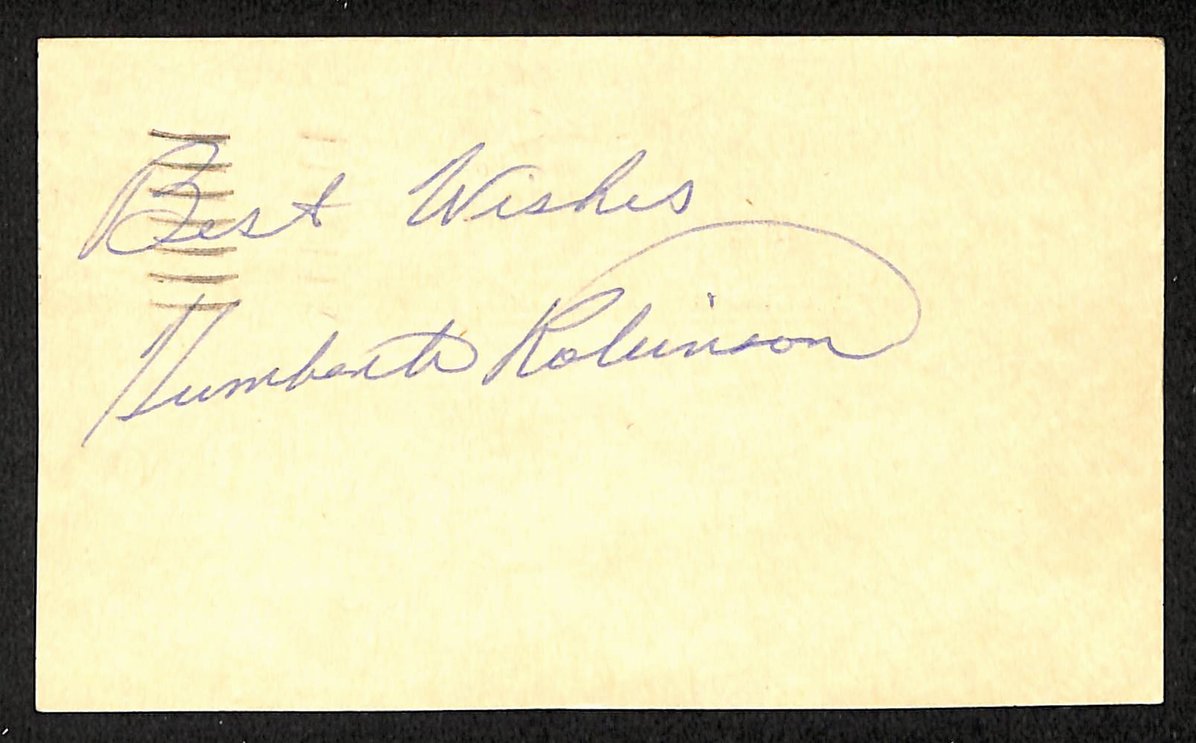 Best Wishes
Humberto Robinson